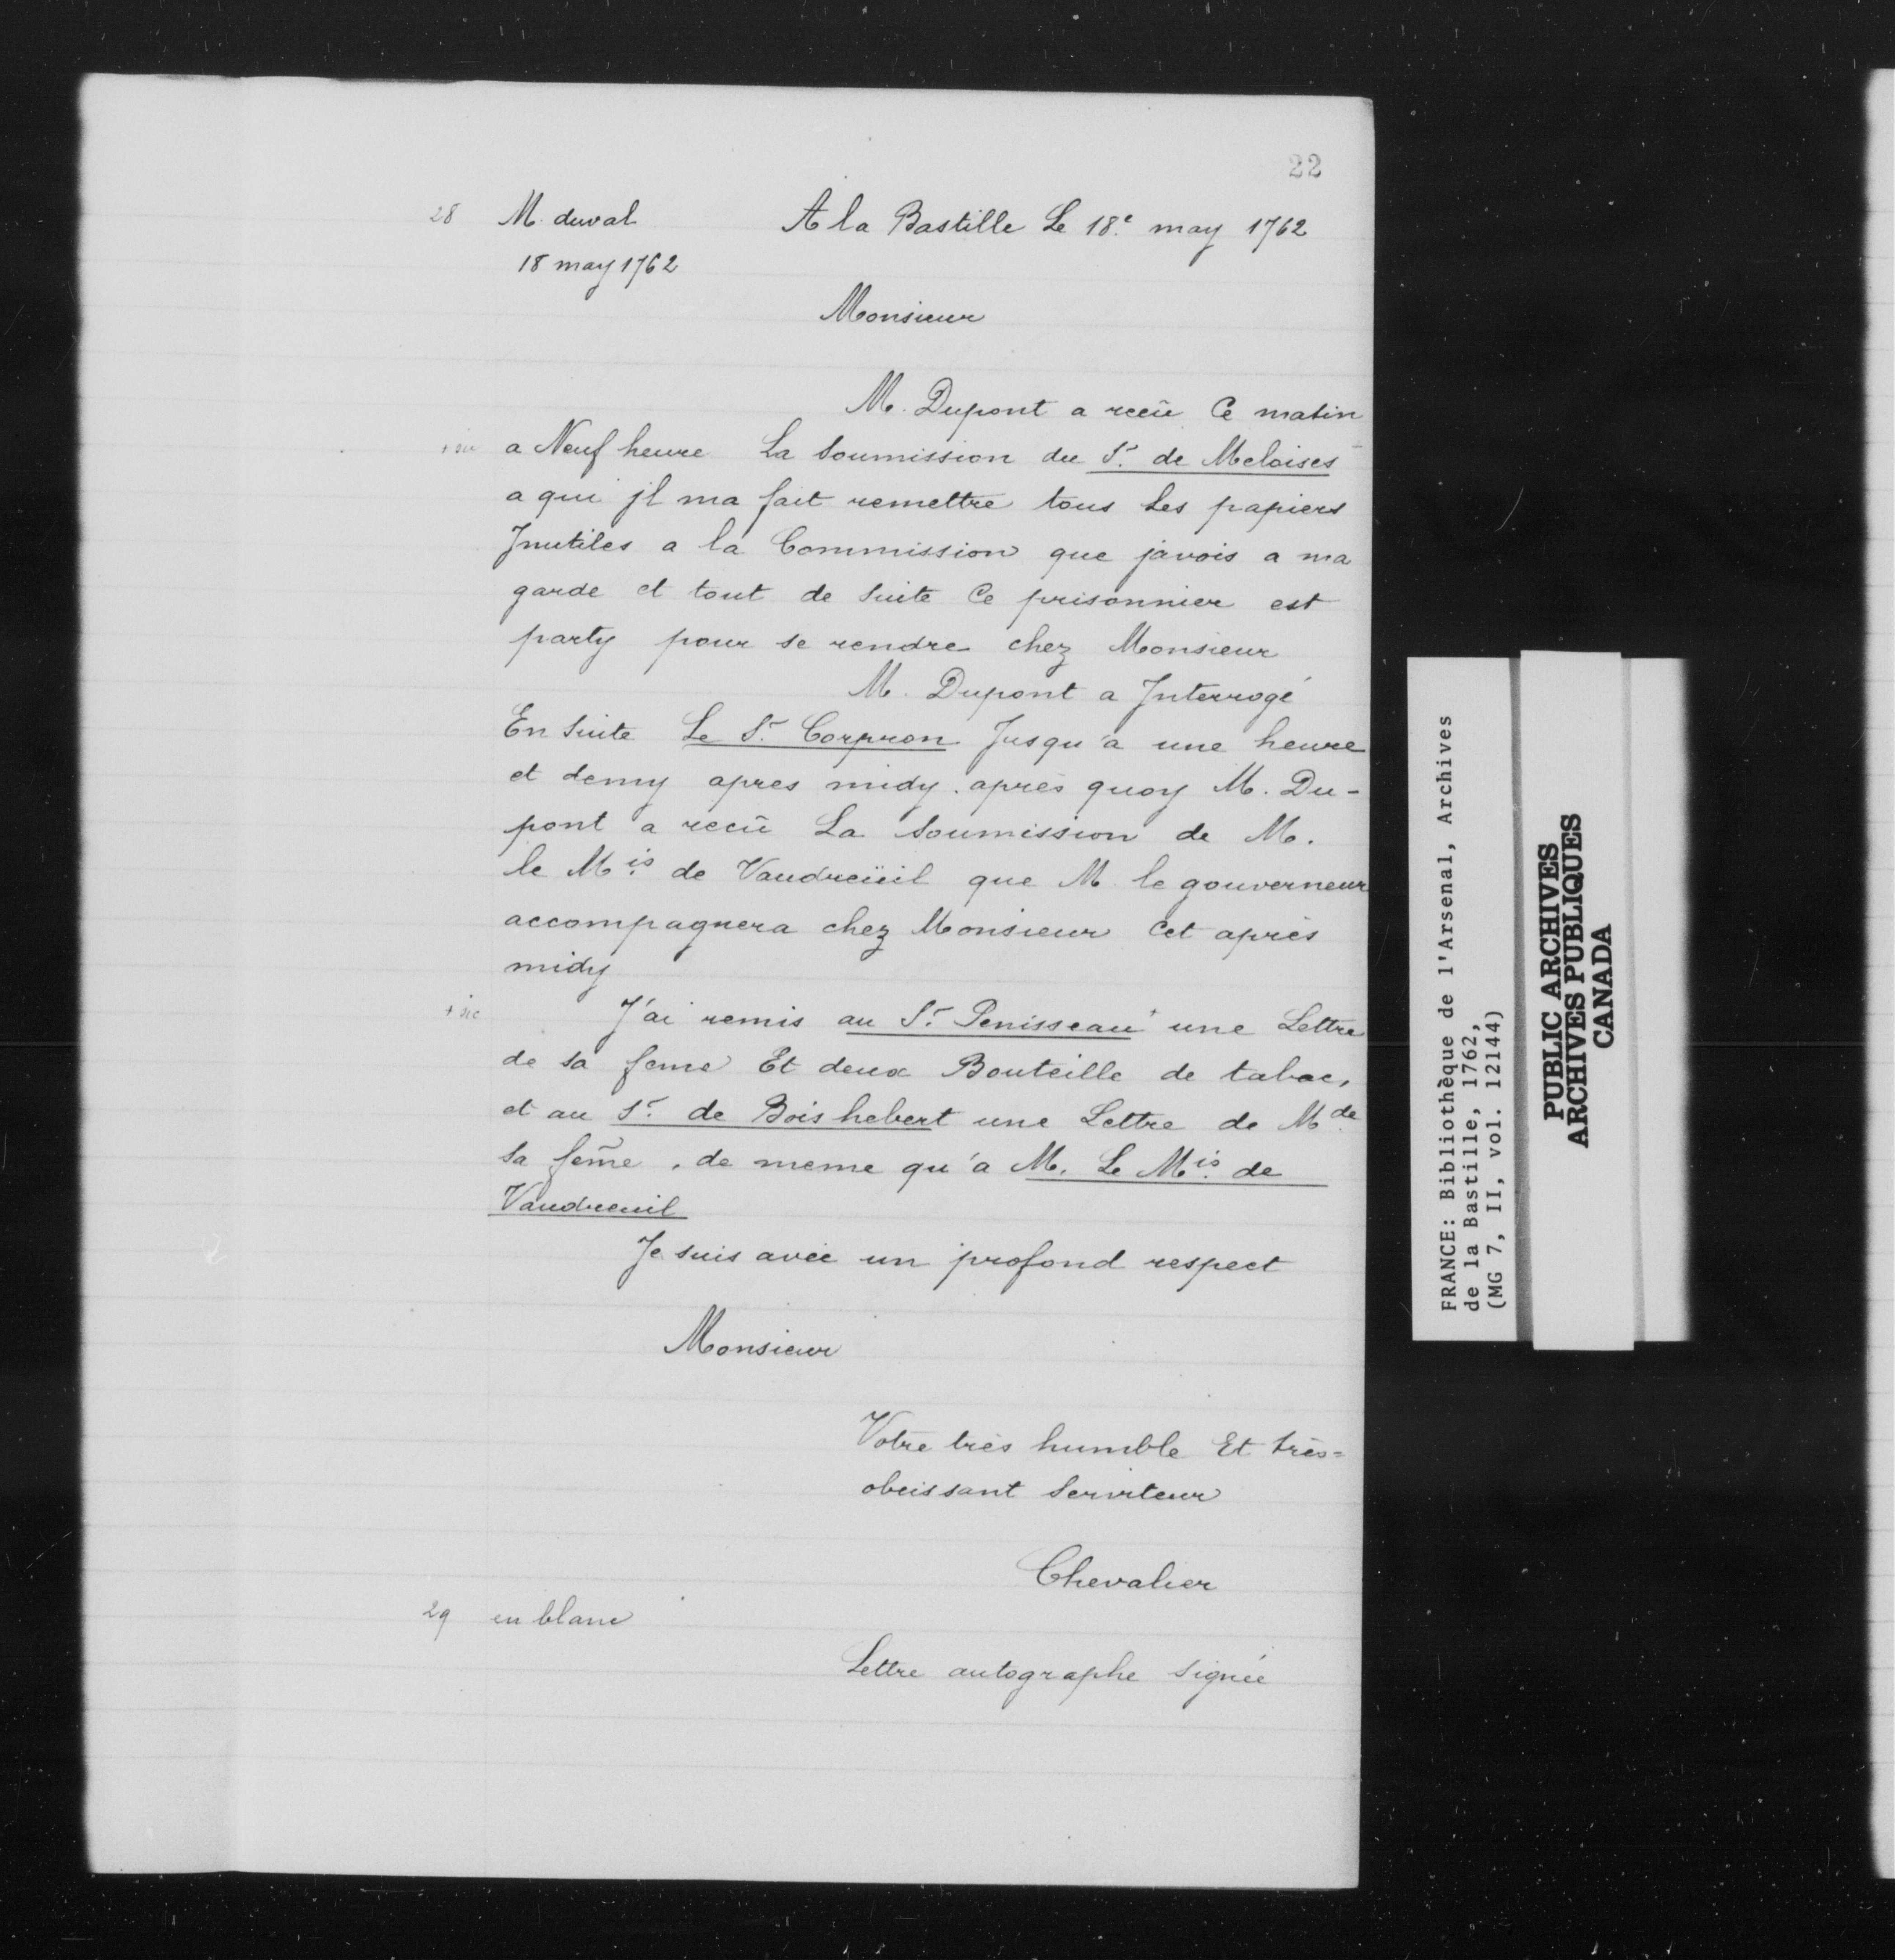 22
28 M. duval A la Bastille Le 18e. may 1762
18 may 1762
Monsieur
M. Dupont a reçû Ce matin
+ sic a Neuf heure La Soumission du Sr. de Meloises
a qui jl ma fait remettre tous Les papiers
Jnutiles a la Commission que javois a ma
garde et tout de Suite Ce prisonnier est
party pour se rendre chez Monsieur
M. Dupont a Jnterrogé
En Suite Le Sr. Corpron Jusqu'a une heure
et demy apres midy. après quoy M. Du-
pont a recû La Soumission de M.
le Mis. de Vaudreüil que M le gouverneur
accompagnera chez Monsieur Cet après
midy
+ sic J'ai remis au Sr. Penisseau+ une Lettre
de sa feme Et deux Bouteille de tabac,
et au Sr. de Bois hebert une Lettre de Mde.
sa fem̃e, de meme qu'a M. Le Mis. de
Vaudreuil
Je suis avec un profond respect
Monsieur
Votre très humble Et très=
obeissant Serviteur
Chevalier
29 en blanc
Lettre autographe signée
FRANCE: Bibliothèque de l'Arsenal, Archives
de la Bastille, 1762,
(MG 7, II, vol. 12144)
PUBLIC ARCHIVES
ARCHIVES PUBLIQUES
CANADA